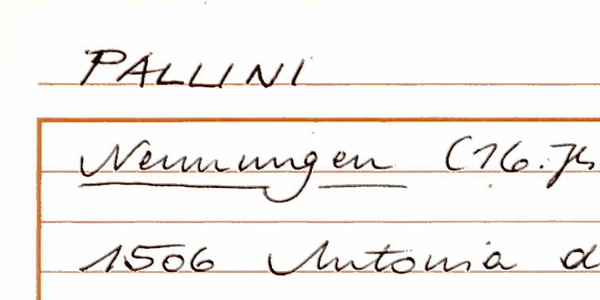 PALLINI
Nennungen (16. Jh
1506 Antonia d